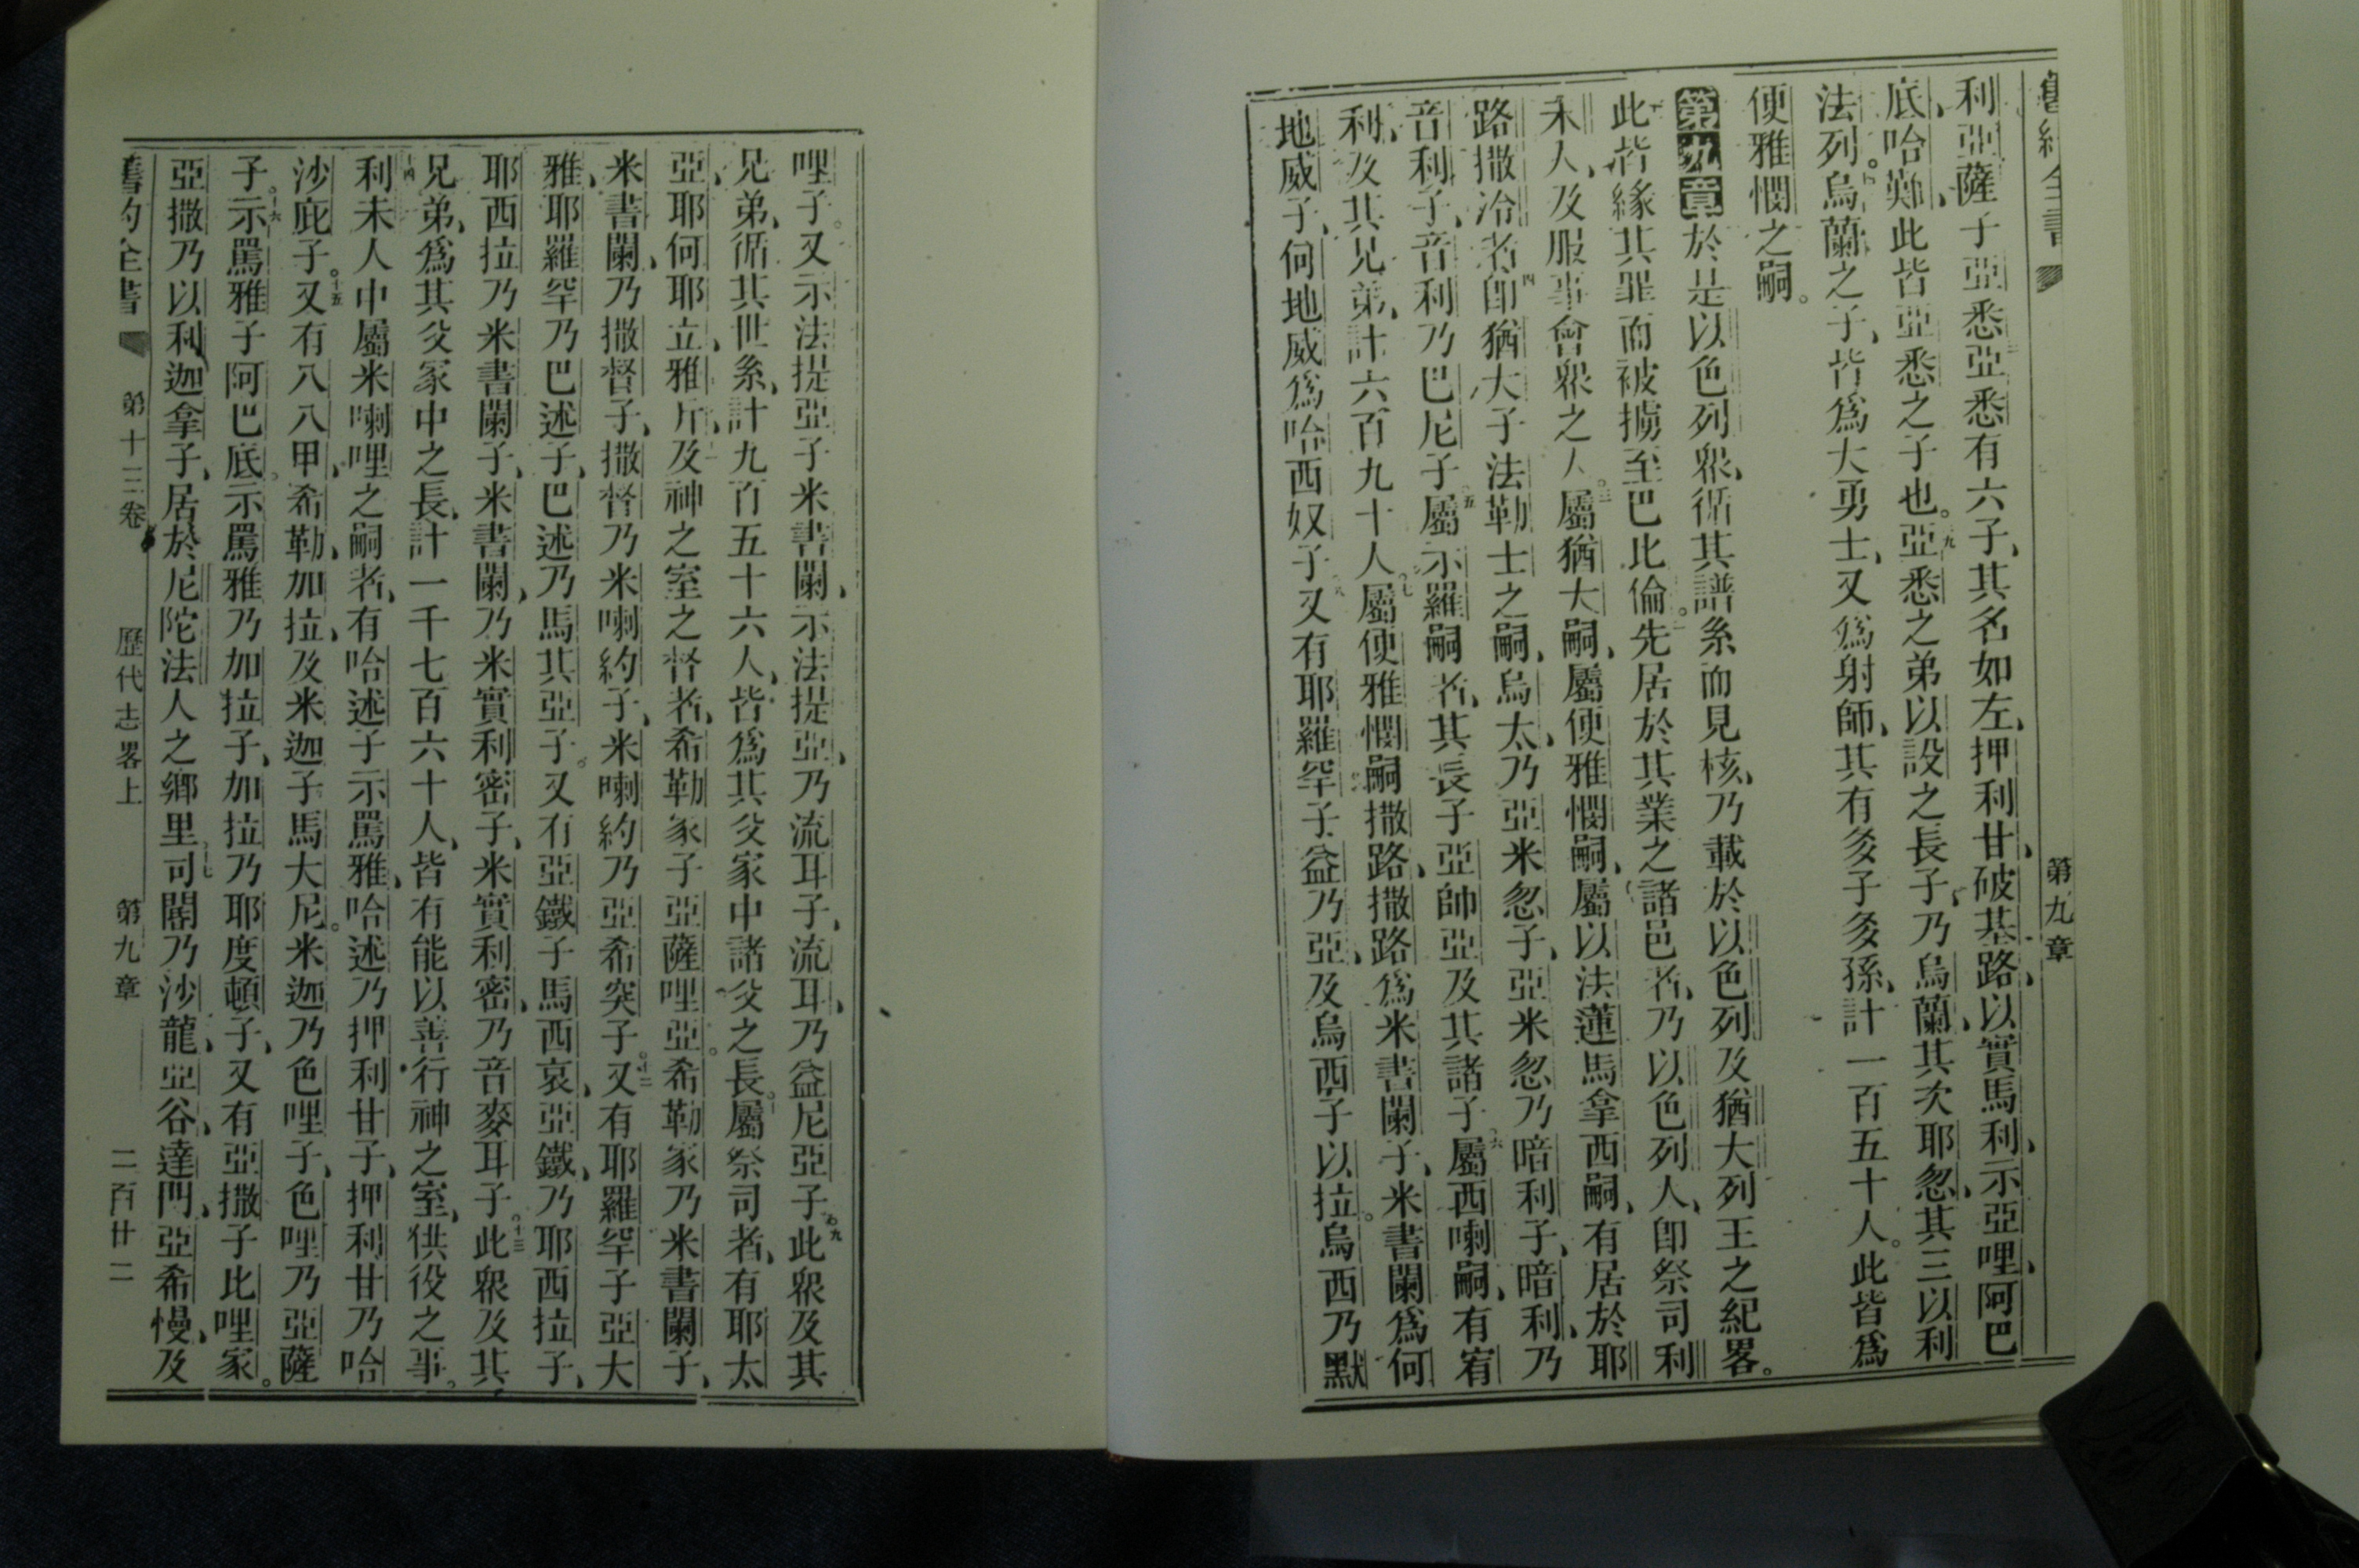 舊約全書 第九章
利亞薩子亞悉亞悉有六子、其名如左、押利甘、破基路、以實馬利、示亞哩、阿巴
底、哈難、此皆亞悉之子也。九亞悉之弟以設之長子、乃烏蘭、其次耶忽、其三以利
法列。烏蘭之子、皆爲大勇士、又爲射師、其有多子多孫、計一百五十人。此皆爲
便雅憫之嗣。
第九章 於是以色列眾、循其譜系而見核、乃載於以色列及猶大列王之紀畧。
此皆緣其罪而被擄至巴比倫。先居於其業之諸邑者、乃以色列人、卽祭司利
未人、及服事會眾之人。三屬猶大嗣、屬便雅憫嗣、屬以法蓮馬拿西嗣、有居於耶
路撒冷者、四卽猶大子法勒士之嗣、烏太、乃亞米忽子、亞米忽乃暗利子、暗利、乃
音利子、音利乃巴尼子五屬示羅嗣者、其長子亞帥亞及其諸子六屬西喇嗣、有宥
利、及其兄弟、計六百九十人。七屬便雅憫嗣撒路、撒路爲米書闌子、米書闌爲何
地威子、何地威爲哈西奴子八又有耶羅罕子益乃亞、及烏西子以拉。烏西乃默
哩子。又示法提亞子米書闌、示法提亞、乃流耳子、流耳、乃益尼亞子九此眾及其
兄弟、循其世系、計九百五十六人、皆爲其父家中諸父之長。十屬祭司者、有耶太
亞、耶何耶立、雅斤、十一及神之室之督者、希勒家子亞薩哩亞。希勒家乃米書闌子、
米書闌、乃撒督子、撒督乃米喇約子、米喇約乃亞希突子。十二又有耶羅罕子亞大
雅、耶羅罕乃巴述子、巴述乃馬其亞子。又有亞鐵子馬西哀、亞鐵、乃耶西拉子、
耶西拉乃米書闌子、米書闌、乃米實利密子、米實利密、乃音麥耳子。十三此眾及其
兄弟、爲其父家中之長、計一千七百六十人、皆有能以善行神之室、供役之事。
十四利未人中屬米喇哩之嗣者、有哈述子示罵雅、哈述乃押利甘子、押利甘乃哈
沙庇子。十五又有八八甲、希勒、加拉、及米迦子馬大尼。米迦乃色哩子、色哩乃亞薩
子。十六示罵雅子阿巴底。示罵雅乃加拉子、加拉乃耶度頓子、又有亞撒子比哩家。
亞撒乃以利迦拿子、居於尼陀法人之鄉里。十七司閽乃沙龍、亞谷、達門、亞希慢、及
舊約全書 第十三卷 歷代志畧上 第九章 二百廿二